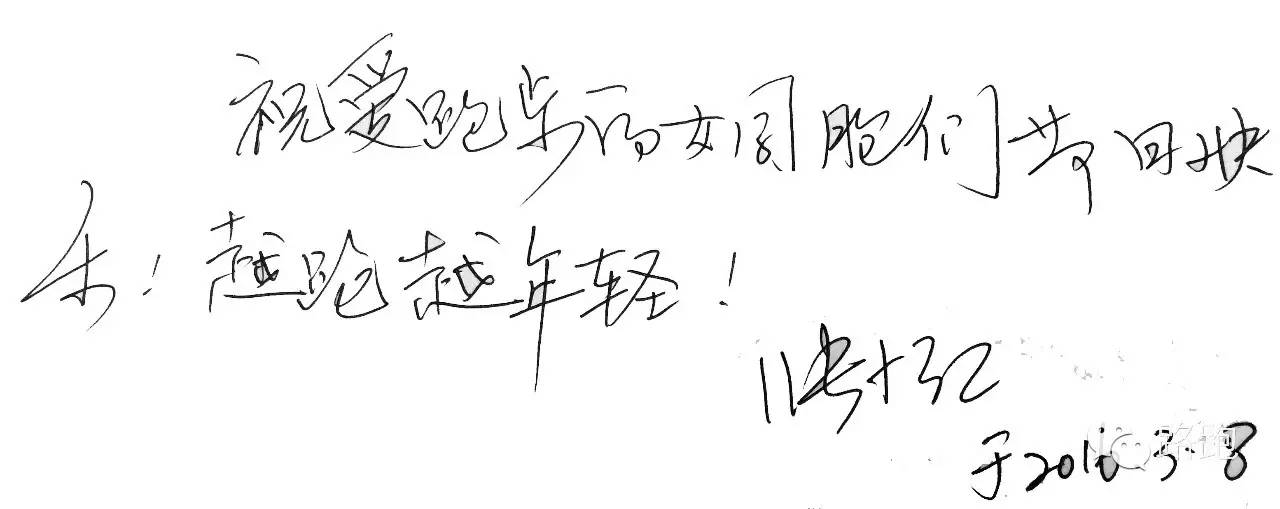 祝爱跑步的女同胞们节日快
乐！越跑越年轻！
于201 3.8
路跑